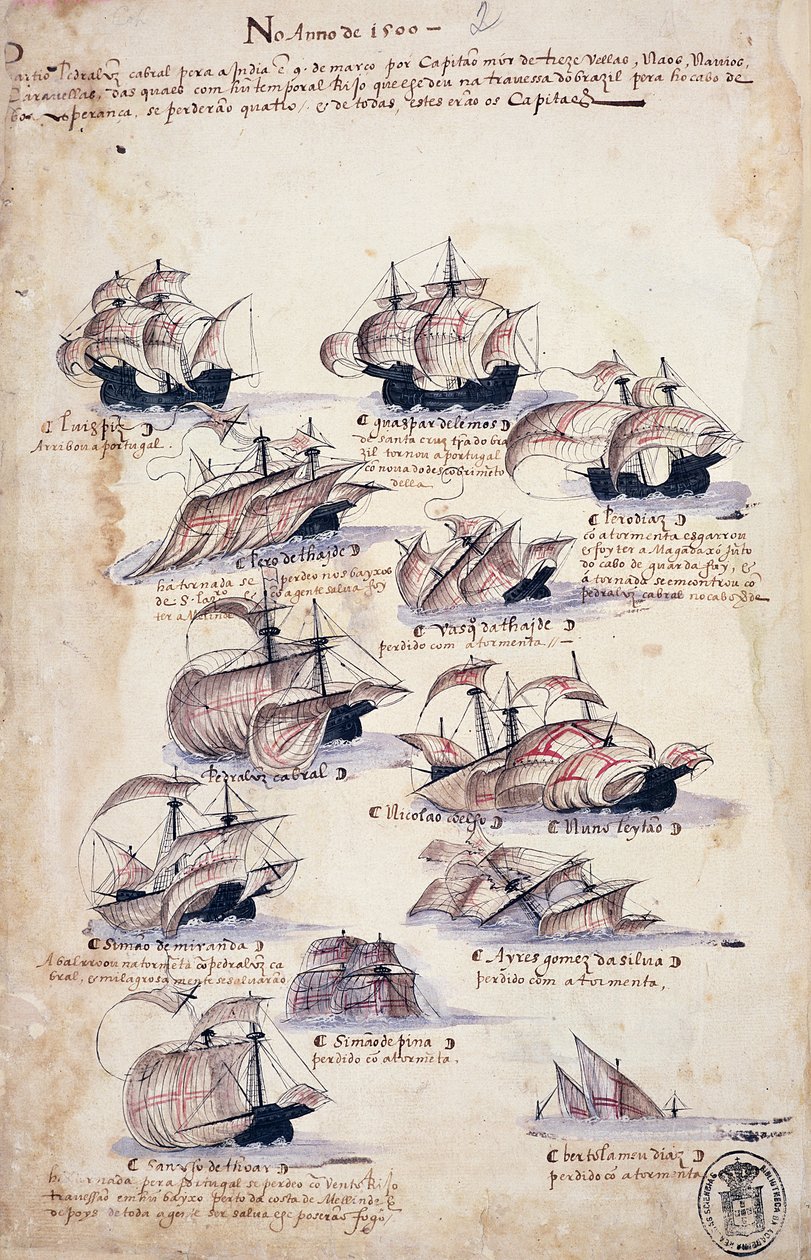 No Anno de 1500 –
2
Partio Pedralvz cabral pera a India ẽ 9. de março por Capitão mór de treze Vellas, Naos, Navios,
Caravellas, das quaes com hũ temporal Rijo que lhe deu na travessa do brazil pera ho cabo de
boa esperanca, se perderão quatro / & de todas, estes erão os Capitaẽs
Luis piz
Arribou a portugal.
guaspar de lemos
de santa cruz terra do bra
zil tornou a portugal
cõ nova do descobrimẽto
della
Pero diaz
cõ a tormenta esgarrou
& foy ter a Magadaxó jũto
do cabo de guarda fuy, &
á tornada se emcontrou cõ
pedralvz cabral no cabo Vde
Pero de thajde
há tornada se perdeo nos bayxos
de S. Lazro & cõ a gente salva foy
ter a Melinde
Vasqo da thajde
perdido com a tormenta //–
Pedralvz cabral
Nicolao coelho
Nuno leytão
Simão de miranda
Abalrroou na tormẽta cõ pedralvz ca
bral, & milagrosamente se salvarão
Ayres gomez da silva
perdido com a tormenta,
Simão de pina
perdido cõ a tormẽta,
Sancho de thoar
há tornada pera portugal se perdeo cõ vento Rijo
travessão em hũ bayxo perto da costa de Mellinde &
depoys de toda a gente ser salva lhe poserão fogo /
bertolameu diaz
perdido cõ a tormenta
BIBLIOTHECA DA ACADEMIA REAL DAS SCIENCIAS